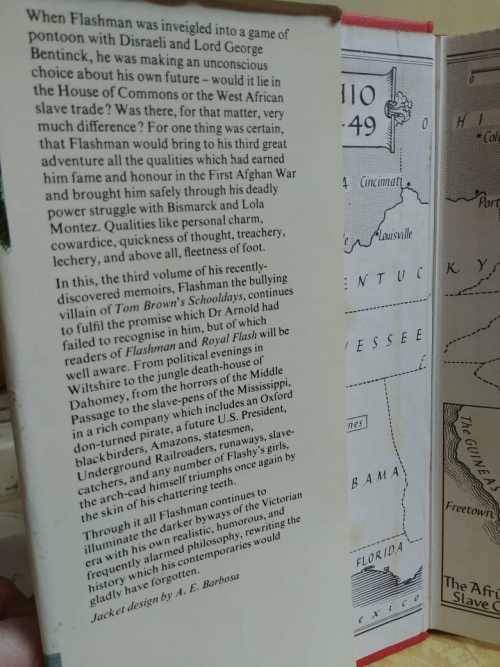 When Flashman was inveigled into a game of
pontoon with Disraeli and Lord George
Bentinck, he was making an unconscious
choice about his own future – would it lie in
the House of Commons or the West African
slave trade? Was there, for that matter, very
much difference? For one thing was certain,
that Flashman would bring to his third great
adventure all the qualities which had earned
him fame and honour in the First Afghan War
and brought him safely through his deadly
power struggle with Bismarck and Lola
Montez. Qualities like personal charm,
cowardice, quickness of thought, treachery,
lechery, and above all, fleetness of foot.
In this, the third volume of his recently-
discovered memoirs, Flashman the bullying
villain of Tom Brown's Schooldays, continues
to fulfil the promise which Dr Arnold had
failed to recognise in him, but of which
readers of Flashman and Royal Flash will be
well aware. From political evenings in
Wiltshire to the jungle death-house of
Dahomey, from the horrors of the Middle
Passage to the slave-pens of the Mississippi,
in a rich company which includes an Oxford
don-turned pirate, a future U.S. President,
blackbirders, Amazons, statesmen,
Underground Railroaders, runaways, slave-
catchers, and any number of Flashy's girls,
the arch-cad himself triumphs once again by
the skin of his chattering teeth.
Through it all Flashman continues to
illuminate the darker byways of the Victorian
era with his own realistic, humorous, and
frequently alarmed philosophy, rewriting the
history which his contemporaries would
gladly have forgotten.
Jacket design by A. E. Barbosa
-49
O H I
Cincinnati
Louisville
E N T U C K Y
E S S E E
B A M A
FLORIDA
exico
The GUINEA
Freetown
The Afri
Slave C